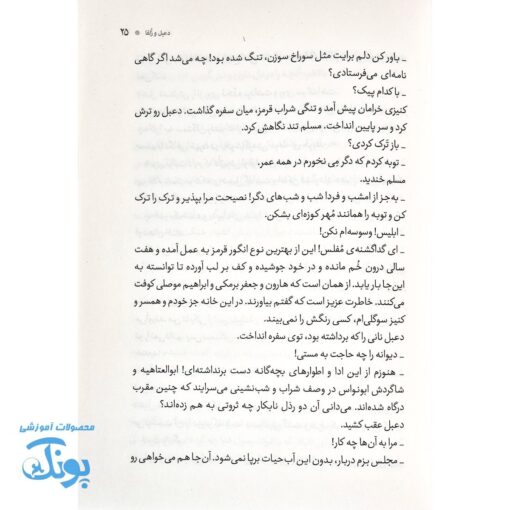 دعبل و زلفا ● ۲۵
ـ باور کن دلم برایت مثل سوراخ سوزن، تنگ شده بود! چه می‌شد اگر گاهی
نامه‌ای می‌فرستادی؟
ـ با کدام پیک؟
کنیزی خرامان پیش آمد و تنگی شراب قرمز، میان سفره گذاشت. دعبل رو ترش
کرد و سر پایین انداخت. مسلم تند نگاهش کرد.
ـ باز تَرک کردی؟
ـ توبه کردم که دگر مِی نخورم در همه عمر.
مسلم خندید.
ـ به‌جز از امشب و فردا شب و شب‌های دگر! نصیحت مرا بپذیر و ترک را ترک
کن و توبه را همانند مُهر کوزه‌ای بشکن.
ـ ابلیس! وسوسه‌ام نکن!
ـ ای گداگشنه‌ی مُفلس! این از بهترین نوع انگور قرمز به عمل آمده و هفت
سالی درون خُم مانده و در خود جوشیده و کف بر لب آورده تا توانسته به
این‌جا بار یابد. از همان است که هارون و جعفر برمکی و ابراهیم موصلی کوفت
می‌کنند. خاطرت عزیز است که گفتم بیاورند. در این خانه جز خودم و همسر و
کنیز سوگلی‌ام، کسی رنگش را نمی‌بیند.
دعبل نانی را که برداشته بود، توی سفره انداخت.
ـ دیوانه را چه حاجت به مستی!
ـ هنوزم از این ادا و اطوارهای بچه‌گانه دست برنداشته‌ای! ابوالعتاهیه و
شاگردش ابونواس در وصف شراب و شب‌نشینی می‌سرایند که چنین مقرب
درگاه شده‌اند. می‌دانی آن دو رذل نابکار چه ثروتی به هم زده‌اند؟
دعبل عقب کشید.
ـ مرا به آن‌ها چه کار!
ـ مجلس بزم دربار، بدون این آب حیات برپا نمی‌شود. آن‌جا هم می‌خواهی رو
محصولات آموزشی
پونک